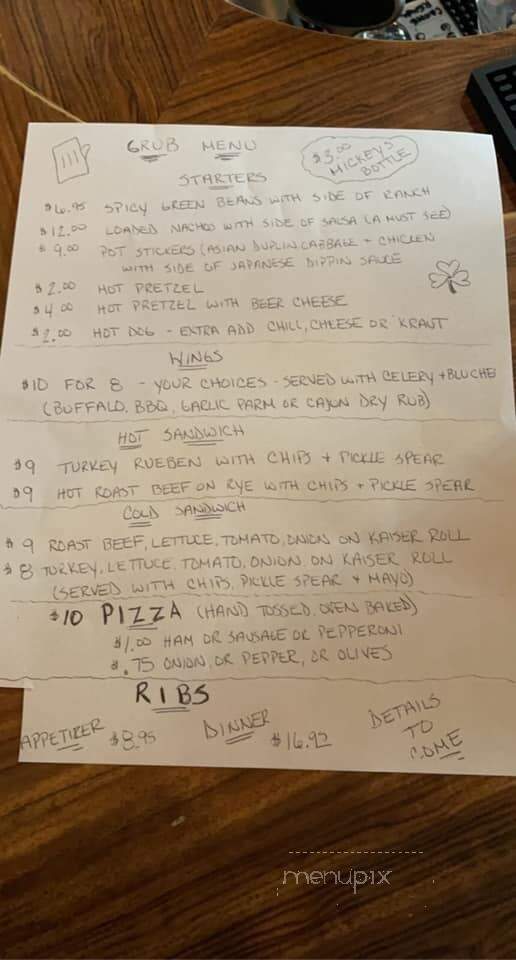 GRUB MENU
$3.00 MICKEYS BOTTLE
STARTERS
$6.95 SPICY GREEN BEANS WITH SIDE OF RANCH
$12.00 LOADED NACHOS WITH SIDE OF SALSA (A MUST SEE)
$9.00 POT STICKERS (ASIAN DUPLIN CABBAGE + CHICKEN
WITH SIDE OF JAPANESE DIPPIN SAUCE
$2.00 HOT PRETZEL
$4.00 HOT PRETZEL WITH BEER CHEESE
$2.00 HOT DOG - EXTRA ADD CHILI, CHEESE OR KRAUT
WINGS
$10 FOR 8 - YOUR CHOICES - SERVED WITH CELERY + BLUCHE
(BUFFALO, BBQ, GARLIC PARM OR CAJUN DRY RUB)
HOT SANDWICH
$9 TURKEY RUEBEN WITH CHIPS + PICKLE SPEAR
$9 HOT ROAST BEEF ON RYE WITH CHIPS + PICKLE SPEAR
COLD SANDWICH
$9 ROAST BEEF, LETTUCE, TOMATO, ONION ON KAISER ROLL
$8 TURKEY, LETTUCE, TOMATO, ONION, ON KAISER ROLL
(SERVED WITH CHIPS, PICKLE SPEAR + MAYO)
$10 PIZZA (HAND TOSSED, OVEN BAKED)
$1.00 HAM OR SAUSAGE OR PEPPERONI
$.75 ONION, OR PEPPER, OR OLIVES
RIBS
APPETIZER $8.95 DINNER $16.92 DETAILS TO COME
menupix